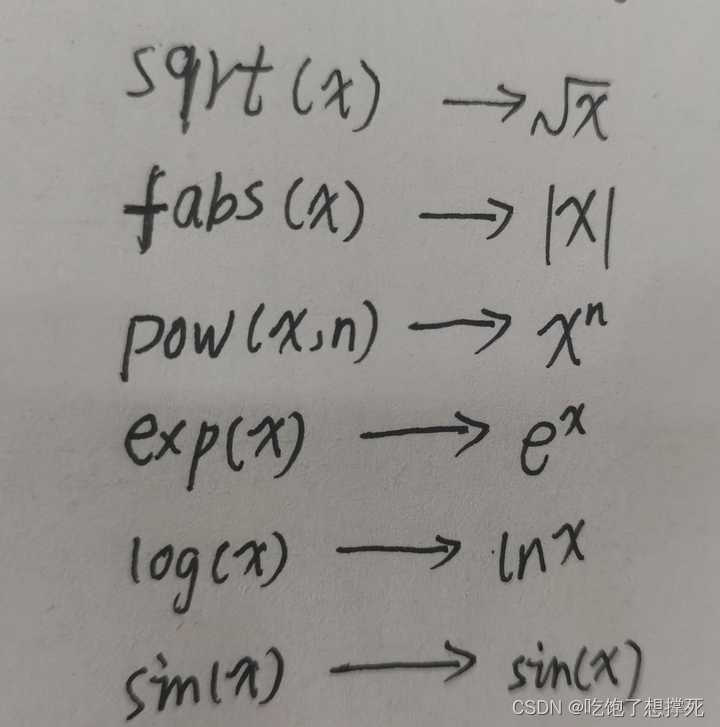 sqrt(x) → √x
fabs(x) → |x|
pow(x,n) → xⁿ
exp(x) → eˣ
log(x) → ln x
sin(x) → sin(x)
CSDN @吃饱了想撑死